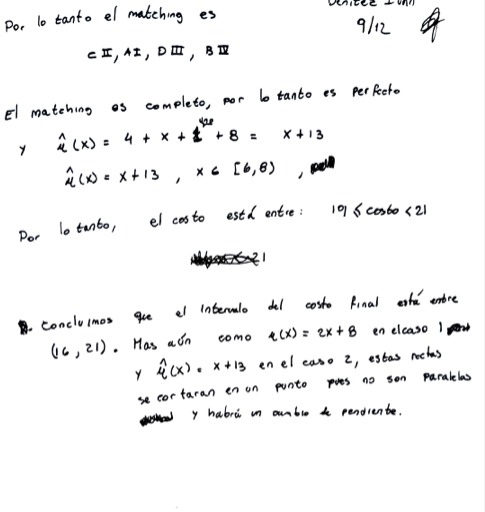 Benitez Ivan
Por lo tanto el matching es
9/12
C II, A I, D III, B IV
El matching es completo, por lo tanto es perfecto
y û(x) = 4 + x + 1 + 8 = x + 13
û(x) = x + 13 , x ∈ [6, 8) ,
Por lo tanto, el costo está entre: 19 ≤ costo < 21
21
Concluimos que el intervalo del costo final está entre
(16, 21). Mas aún como u(x) = 2x + 8 en el caso 1
y û(x) = x + 13 en el caso 2, estas rectas
se cortaran en un punto pues no son paralelas
y habrá un cambio de pendiente.